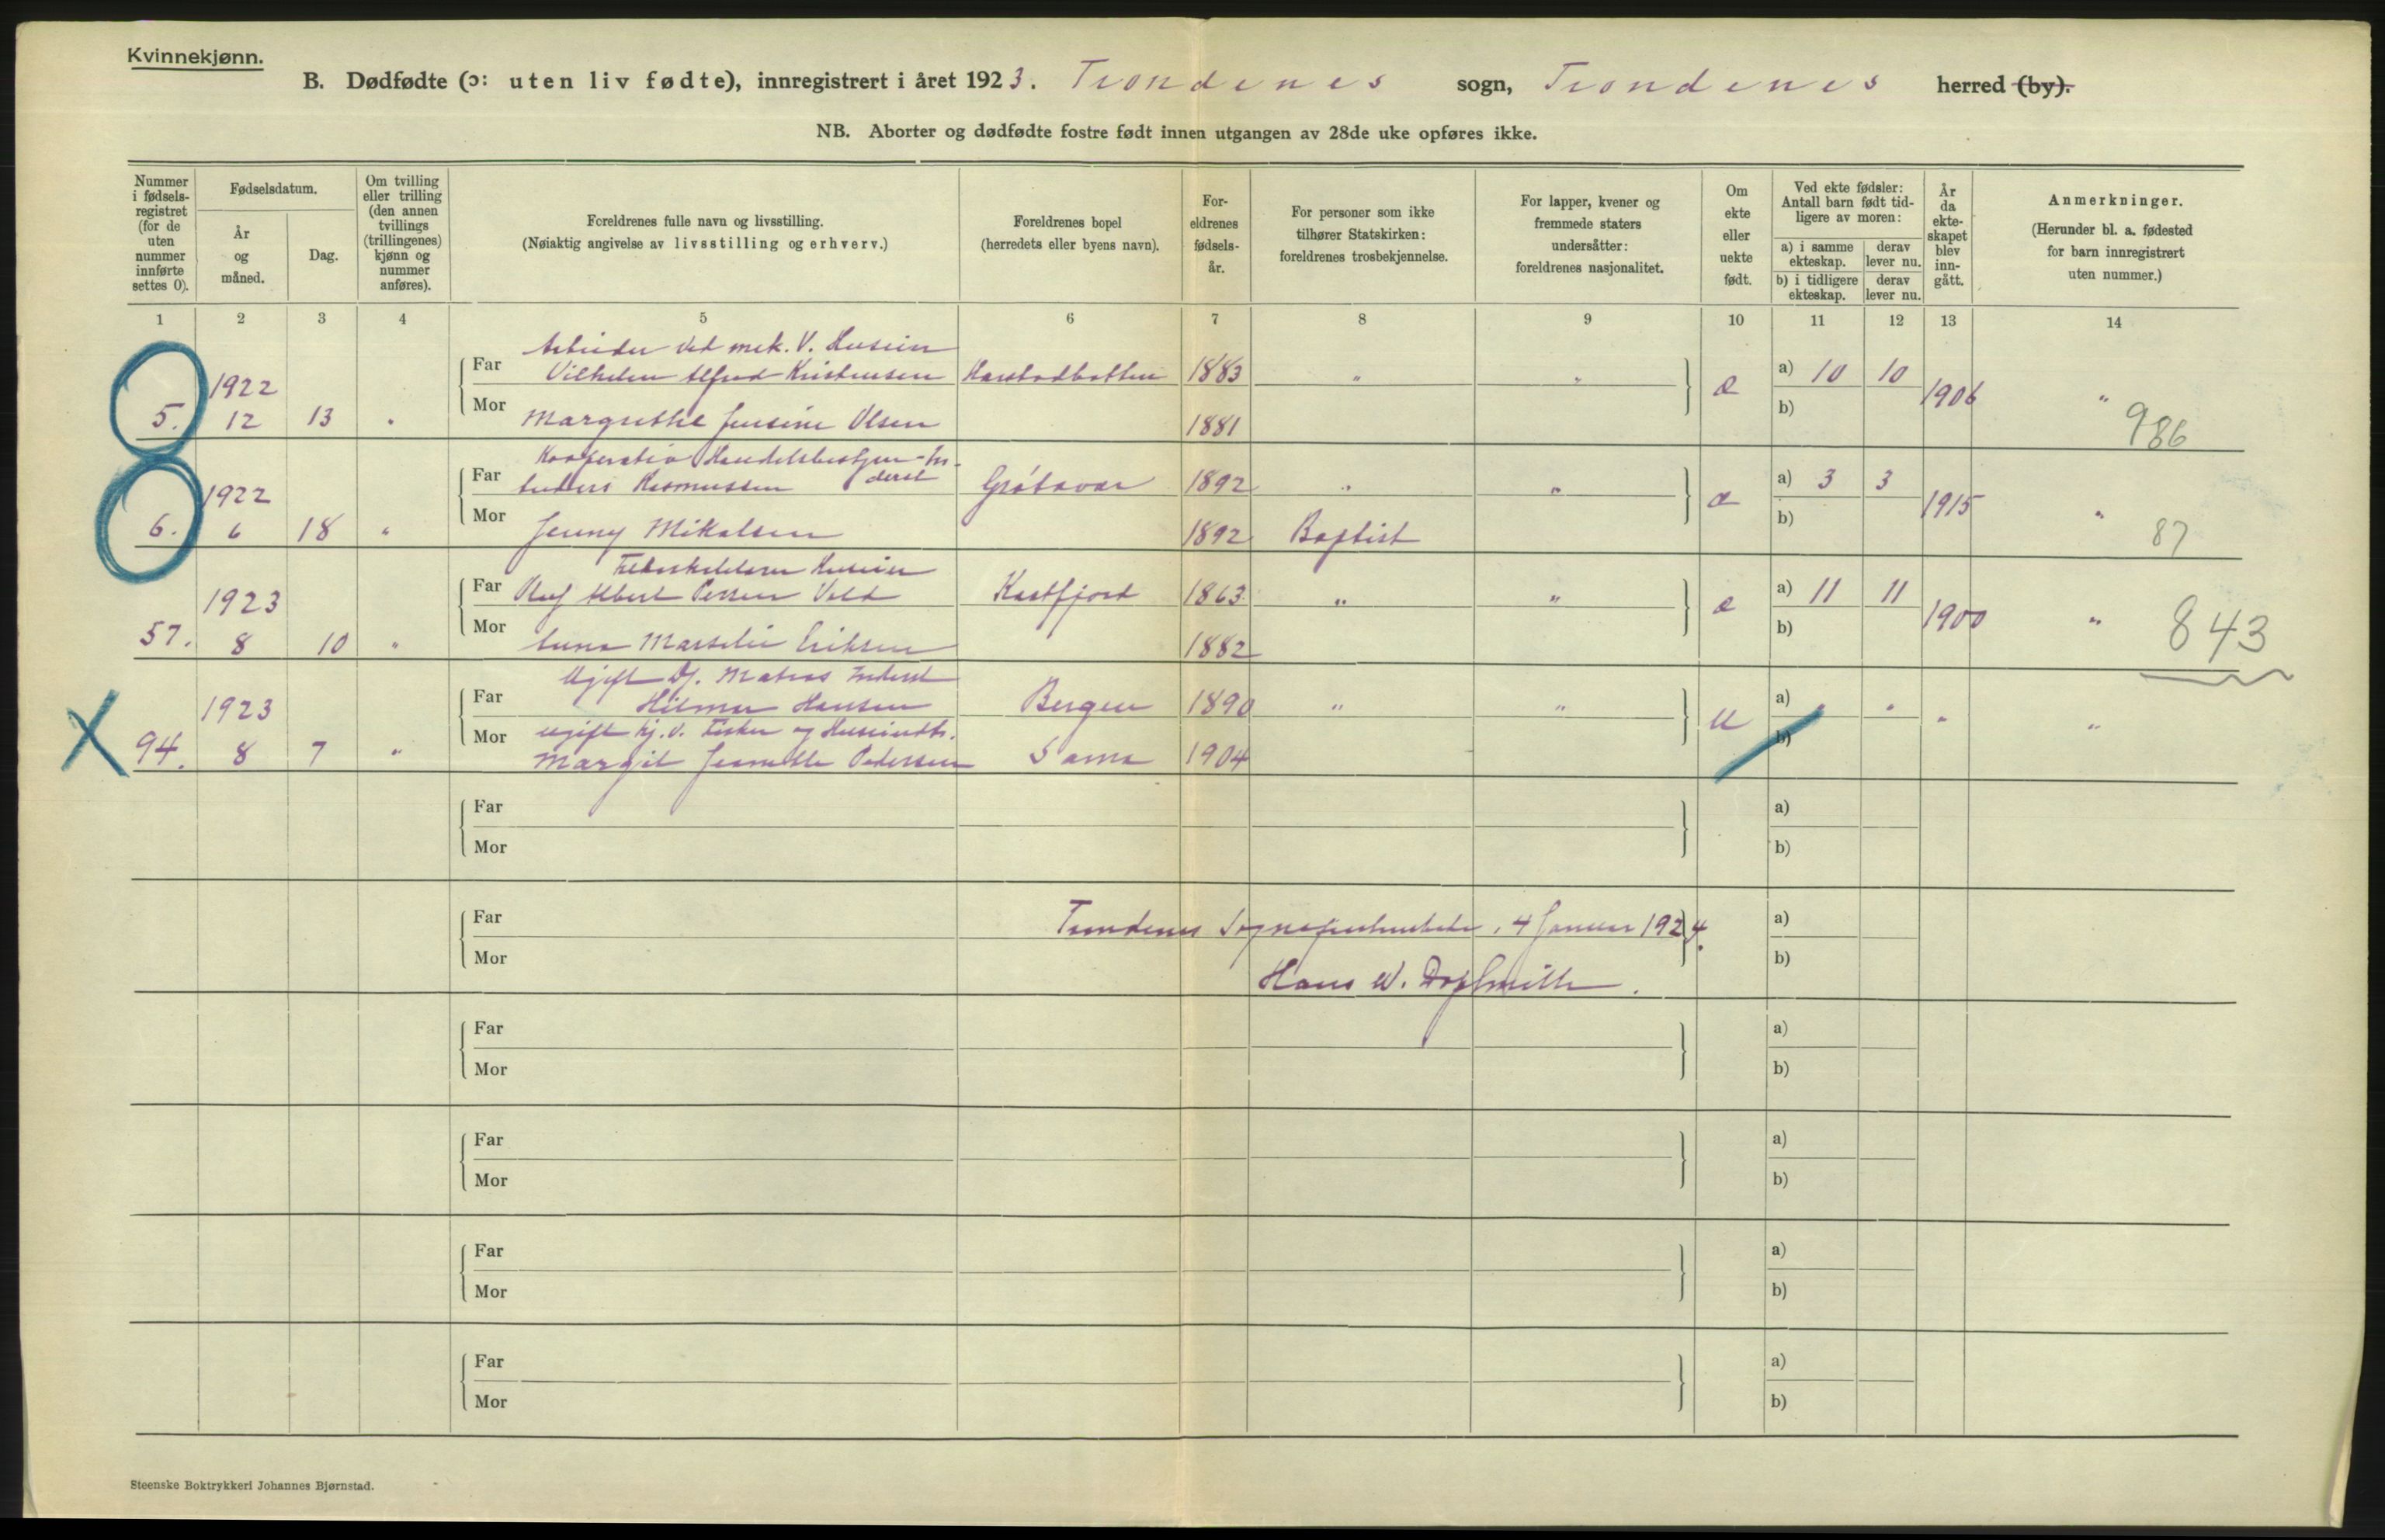 Kvinnekjønn.
B. Dødfødte (ɔ: uten liv fødte), innregistrert i året 1923. Trondenes sogn, Trondenes herred (by).
NB. Aborter og dødfødte fostre født innen utgangen av 28de uke opføres ikke.
Nummer i fødselsregistret (for de uten nummer innførte settes 0).
Fødselsdatum.
År og måned.
Dag.
Om tvilling eller trilling (den annen tvillings (trillingenes) kjønn og nummer anføres).
Foreldrenes fulle navn og livsstilling.
(Nøiaktig angivelse av livsstilling og erhverv.)
Foreldrenes bopel (herredets eller byens navn).
Foreldrenes fødselsår.
For personer som ikke tilhører Statskirken: foreldrenes trosbekjennelse.
For lapper, kvener og fremmede staters undersåtter: foreldrenes nasjonalitet.
Om ekte eller uekte født.
Ved ekte fødsler: Antall barn født tidligere av moren:
a) i samme ekteskap.
derav lever nu.
b) i tidligere ekteskap.
derav lever nu.
År da ekteskapet blev inngått.
Anmerkninger.
(Herunder bl. a. fødested for barn innregistrert uten nummer.)
1 2 3 4 5 6 7 8 9 10 11 12 13 14
Arbeider ved mek. V. Huseier
Far Vilhelm Alfred Kristensen Harstadbotten 1883 " " a) 10 10
1922 1906 "
5. 12 13 " Mor Margrethe Jensine Olsen 1881 b) 986
Kooperativ Handelsbestyrer - In-
Far Anders Rasmussen derst Gråtavær 1892 " " a) 3 3
1922 1915 "
6. 6 18 " Mor Jenny Mikalsen 1892 Baptist b) 87
Huseier
Far Olaf Albert Vold Kastfjord 1863 " " a) 11 11
1923 1900 "
57. 8 10 " Mor Anna Eriksen 1882 b) 843
Ugift Inderst
Far Hilmar Hansen Bergen 1890 " " u a) " " "
1923
ugift Fisker og
94. 8 7 " Mor Margit Jeanette Pedersen Sama 1904 b) "
Far a)
Mor b)
Far a)
Trondenes 4 Januar 1924.
Mor b)
Hans W.
Far a)
Mor b)
Far a)
Mor b)
Far a)
Mor b)
Far a)
Mor b)
Steenske Boktrykkeri Johannes Bjørnstad.